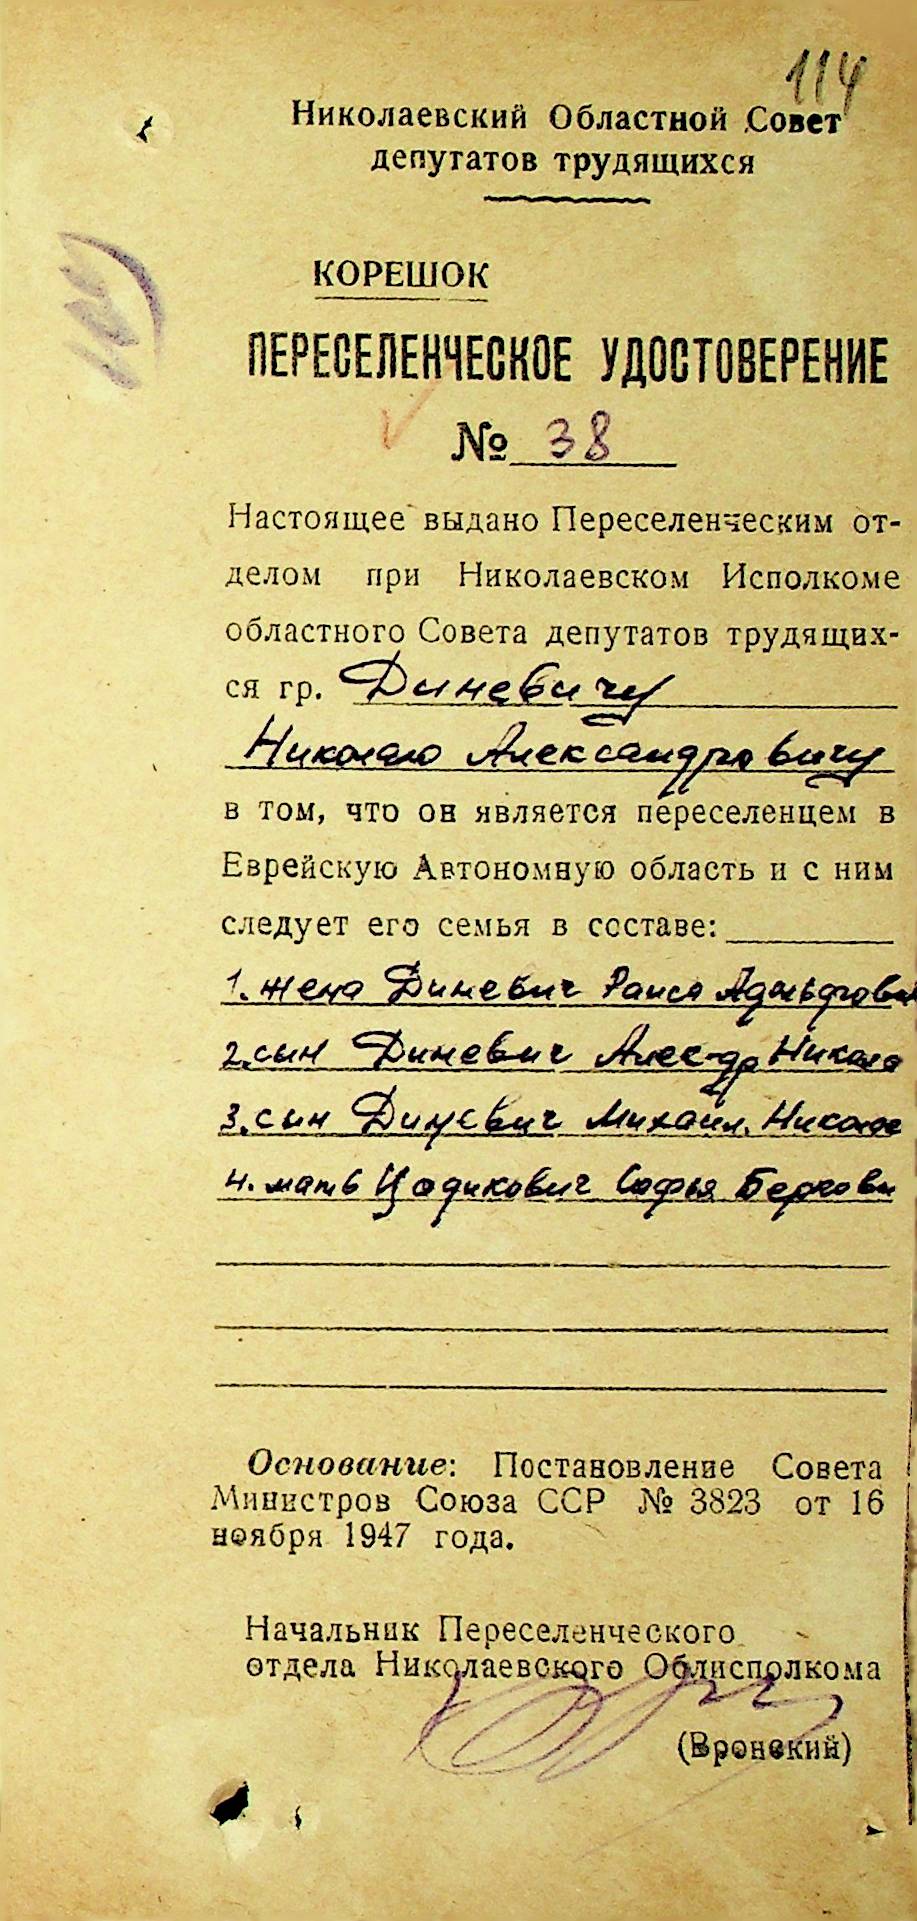 114
Николаевский Областной Совет
депутатов трудящихся
КОРЕШОК
ПЕРЕСЕЛЕНЧЕСКОЕ УДОСТОВЕРЕНИЕ
№ 38
Настоящее выдано Переселенческим от-
делом при Николаевском Исполкоме
областного Совета депутатов трудящих-
ся гр. Диневичу
Николаю Александровичу
в том, что он является переселенцем в
Еврейскую Автономную область и с ним
следует его семья в составе:
1. жена Диневич Раиса Адольфовн
2. сын Диневич Алекс-др Никола
3. сын Диневич Михаил. Николае
4. мать Цадикович Софья Берговн
Основание: Постановление Совета
Министров Союза ССР № 3823 от 16
ноября 1947 года.
Начальник Переселенческого
отдела Николаевского Облисполкома
(Вронский)